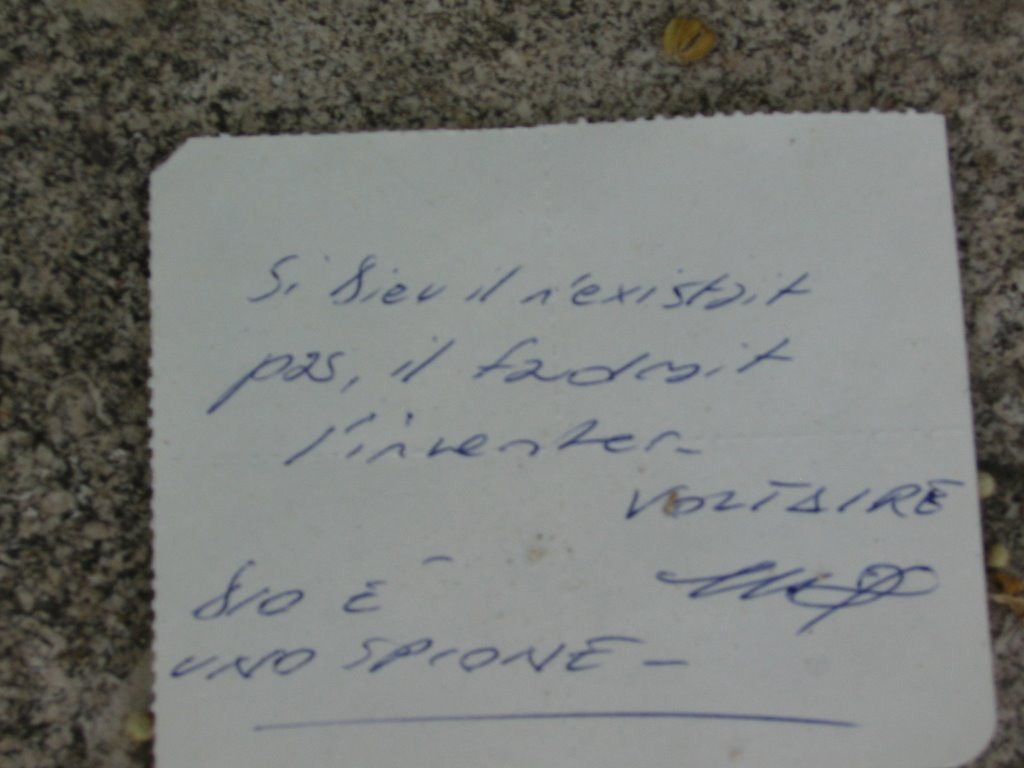 Si Dieu il n'existait
pas, il faudrait
l'inventer-
VOLTAIRE
DIO È
UNO SPIONE-